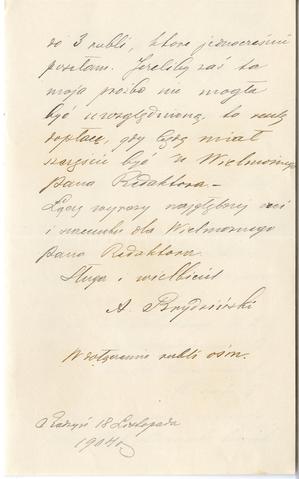 do 3 rubli, które jednocześnie
posełam. Jeżeliby zaś ta
moja prośba nie mogła
być uwzględnioną, to resztę
dopłacę, gdy będę miał
szczęście być u Wielmożnego
pana Redaktora. –
Łączę wyrazy najgłębszej czci
i szacunku dla Wielmożnego
pana Redaktora.
Sługa i wielbiciel
A. Brydziński
W załączeniu rubli ośm.
18 Listopada
1904 r